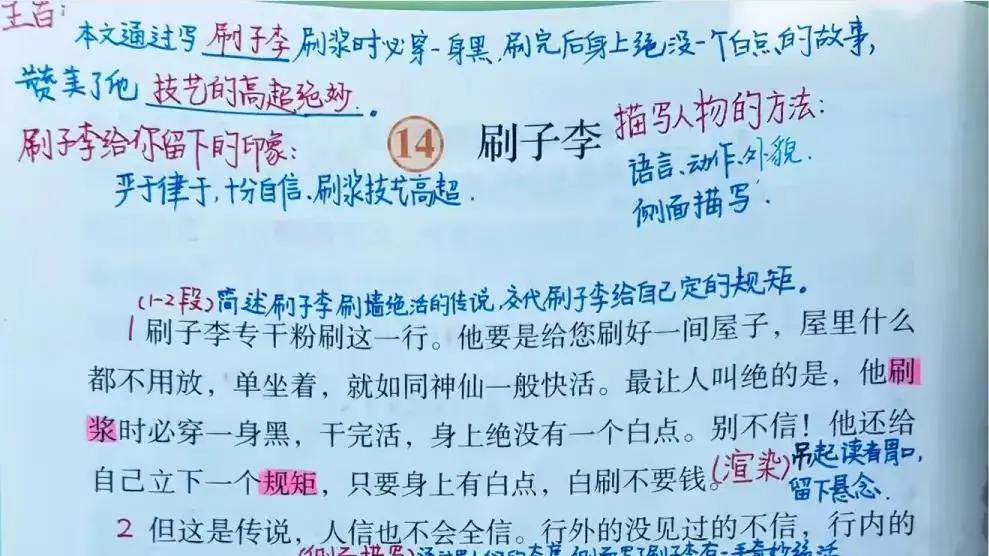 主旨:
本文通过写 刷子李 刷浆时必穿一身黑,刷完后身上绝没一个白点的故事,
赞美了他 技艺的高超绝妙.。
刷子李给你留下的印象:
严于律于,十分自信、刷浆技艺高超.
14 刷子李
描写人物的方法:
语言、动作、外貌.
侧面描写.
(1-2段)简述刷子李刷墙绝活的传说,交代刷子李给自己定的规矩。
1 刷子李专干粉刷这一行。他要是给您刷好一间屋子,屋里什么
都不用放,单坐着,就如同神仙一般快活。最让人叫绝的是,他刷
浆时必穿一身黑,干完活,身上绝没有一个白点。别不信!他还给
自己立下一个规矩,只要身上有白点,白刷不要钱。(渲染)吊起读者胃口,
留下悬念.
2 但这是传说,人信也不会全信。行外的没见过的不信,行内的